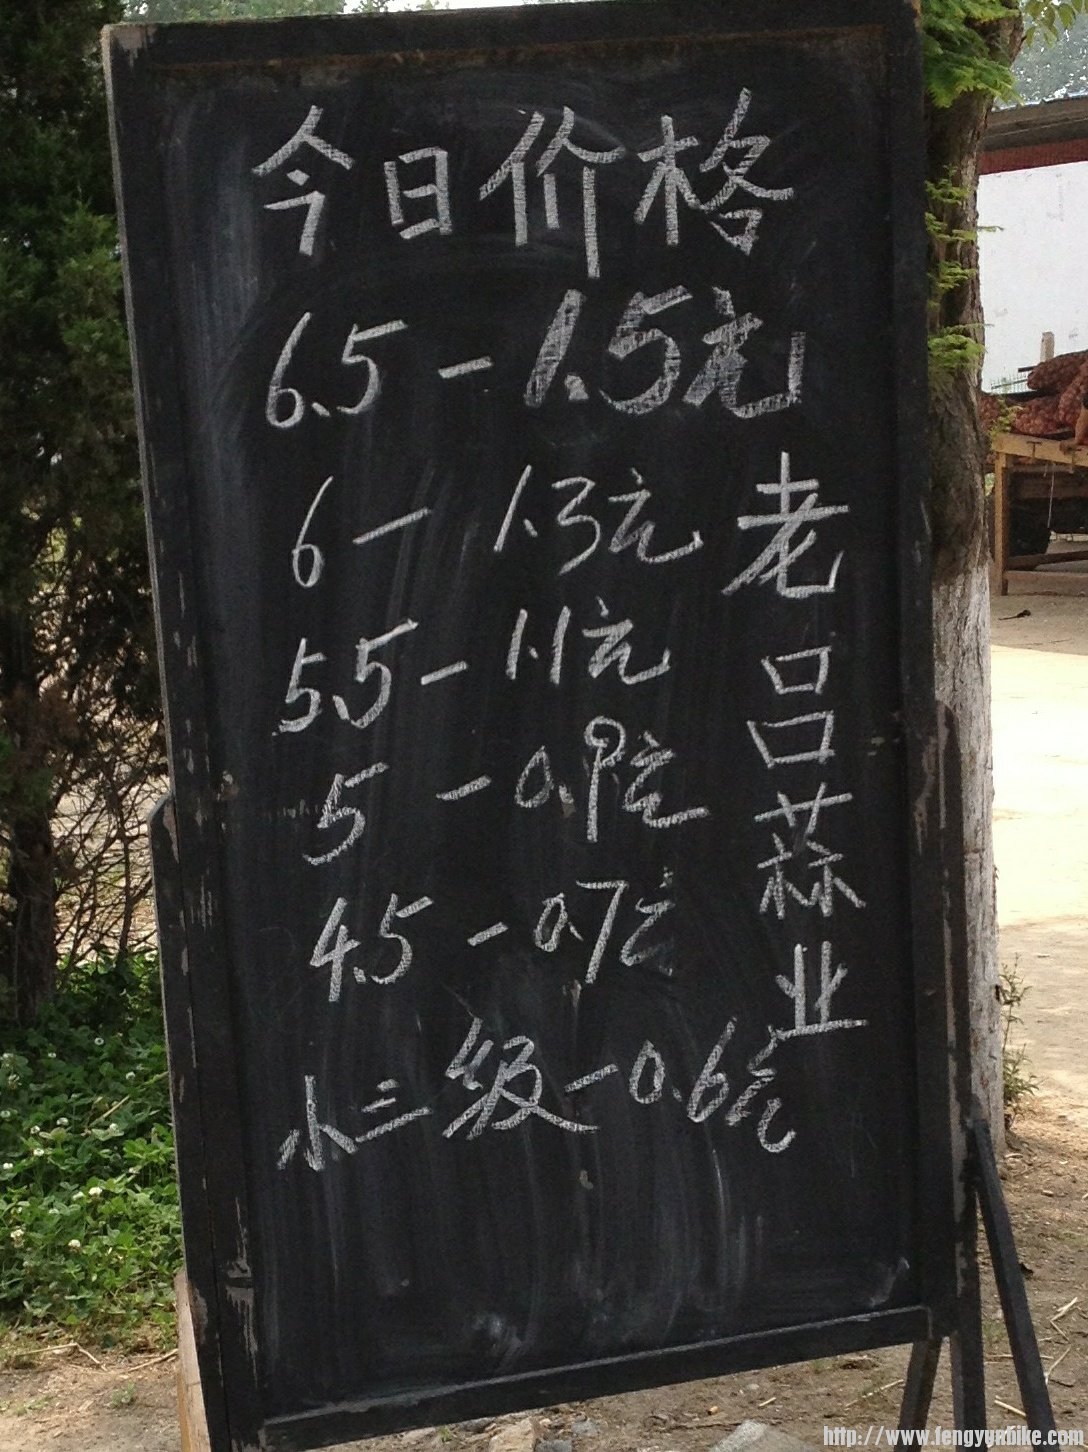 今日价格
6.5-1.5元
6-1.3元
5.5-1.1元
5-0.9元
4.5-0.7元
小三级-0.6元
老吕蒜业
http://www.fengyunbike.com